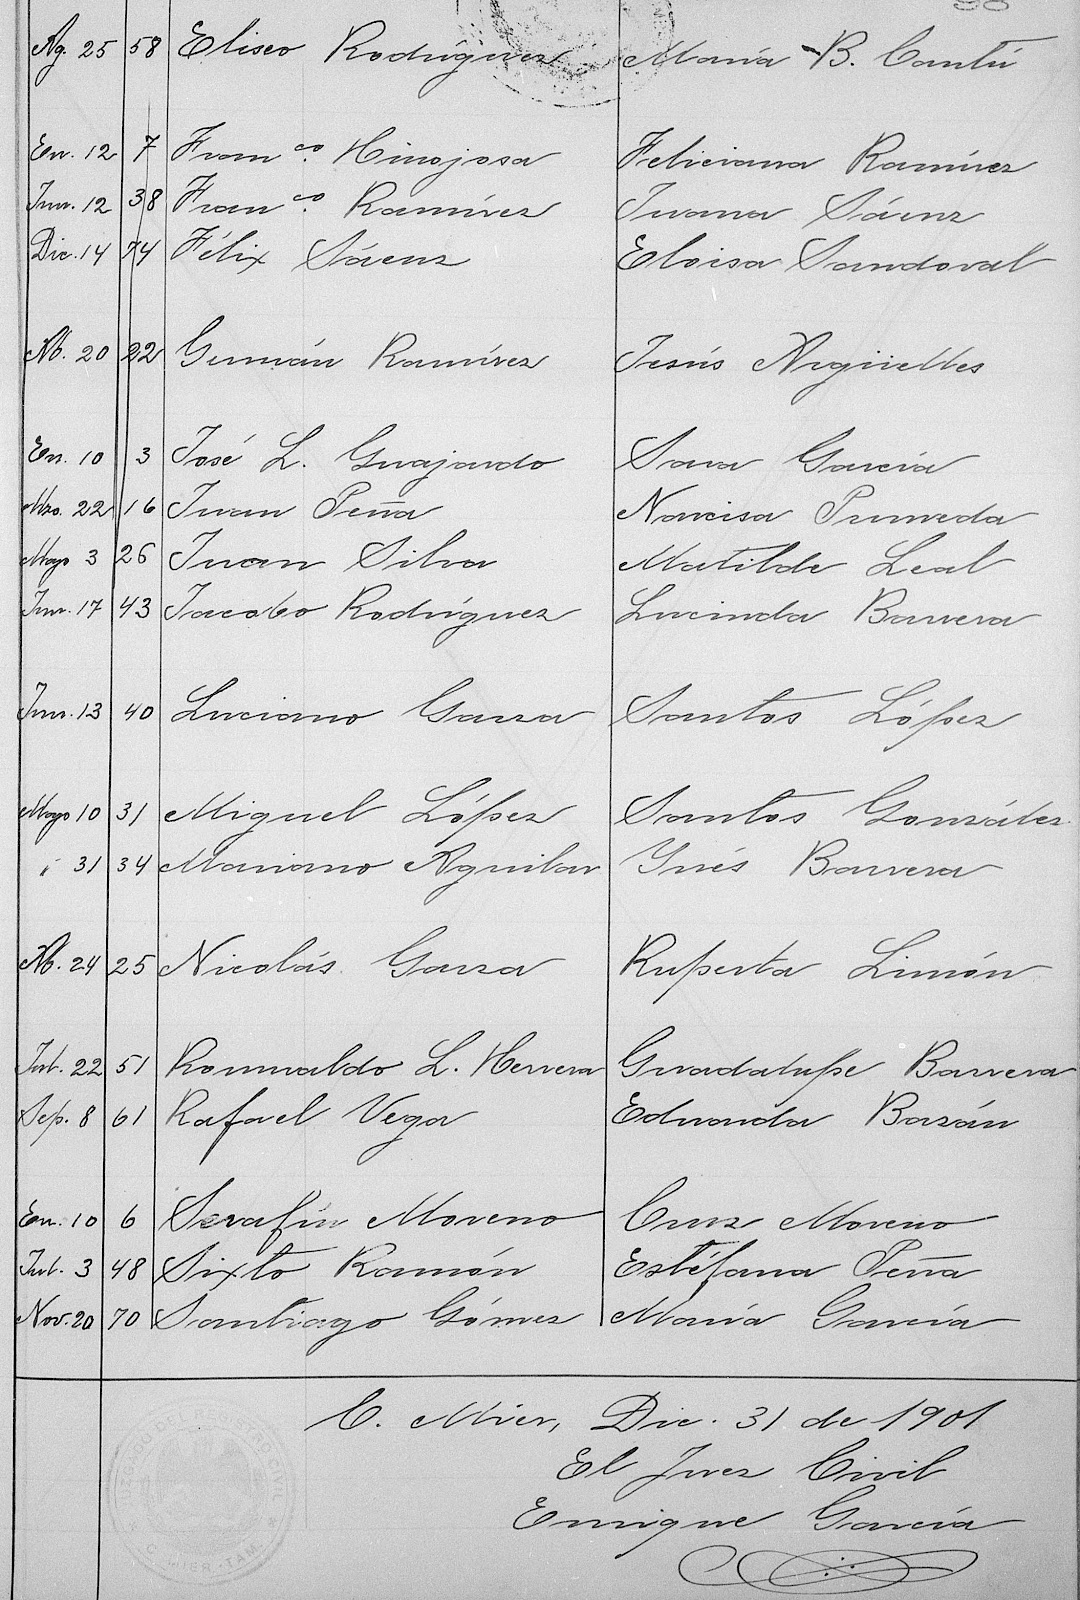 Ag. 25 58 Eliseo Rodríguez María B. Cantú
En. 12 7 Franco. Hinojosa Feliciana Ramírez
Jun. 12 38 Franco. Ramírez Juana Sáenz
Dic. 14 74 Félix Sáenz Eloisa Sandoval
Ab. 20 22 Germán Ramírez Jesús Argüelles
En. 10 3 José L. Guajardo Sara García
Mzo. 22 16 Juan Peña Narcisa Pruneda
Mayo 3 26 Juan Silva Matilde Leal
Jun. 17 43 Jacobo Rodríguez Lucinda Barrera
Jun. 13 40 Luciano Garza Santos López
Mayo 10 31 Miguel López Santos González
" 31 34 Mariano Aguilar Ynés Barrera
Ab. 24 25 Nicolás Garza Ruperta Limón
Jul. 22 51 Romualdo L. Herrera Guadalupe Barrera
Sep. 8 61 Rafael Vega Eduarda Bazán
En. 10 6 Serafín Moreno Cruz Moreno
Jul. 3 48 Sixto Ramón Estéfana Peña
Nov. 20 70 Santiago Gómez María García
C. Mier, Dic. 31 de 1901
El Juez Civil
Enrique García
C. MIER, TAM.